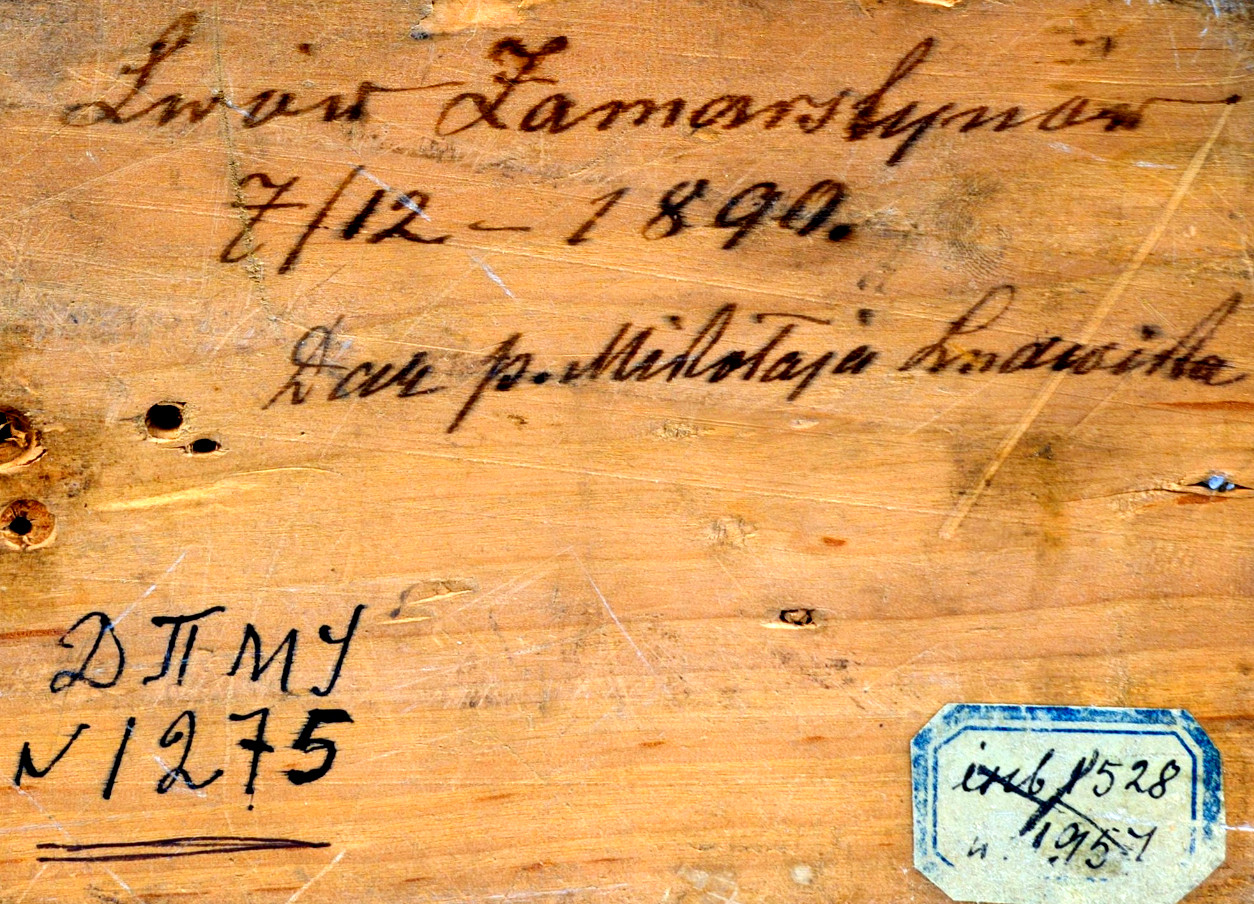 Lwów Zamarstynów
7/12 - 1890.
Dar p. Mikołaja Ludwika
ДПМУ
N 1275
inb 1528
1957